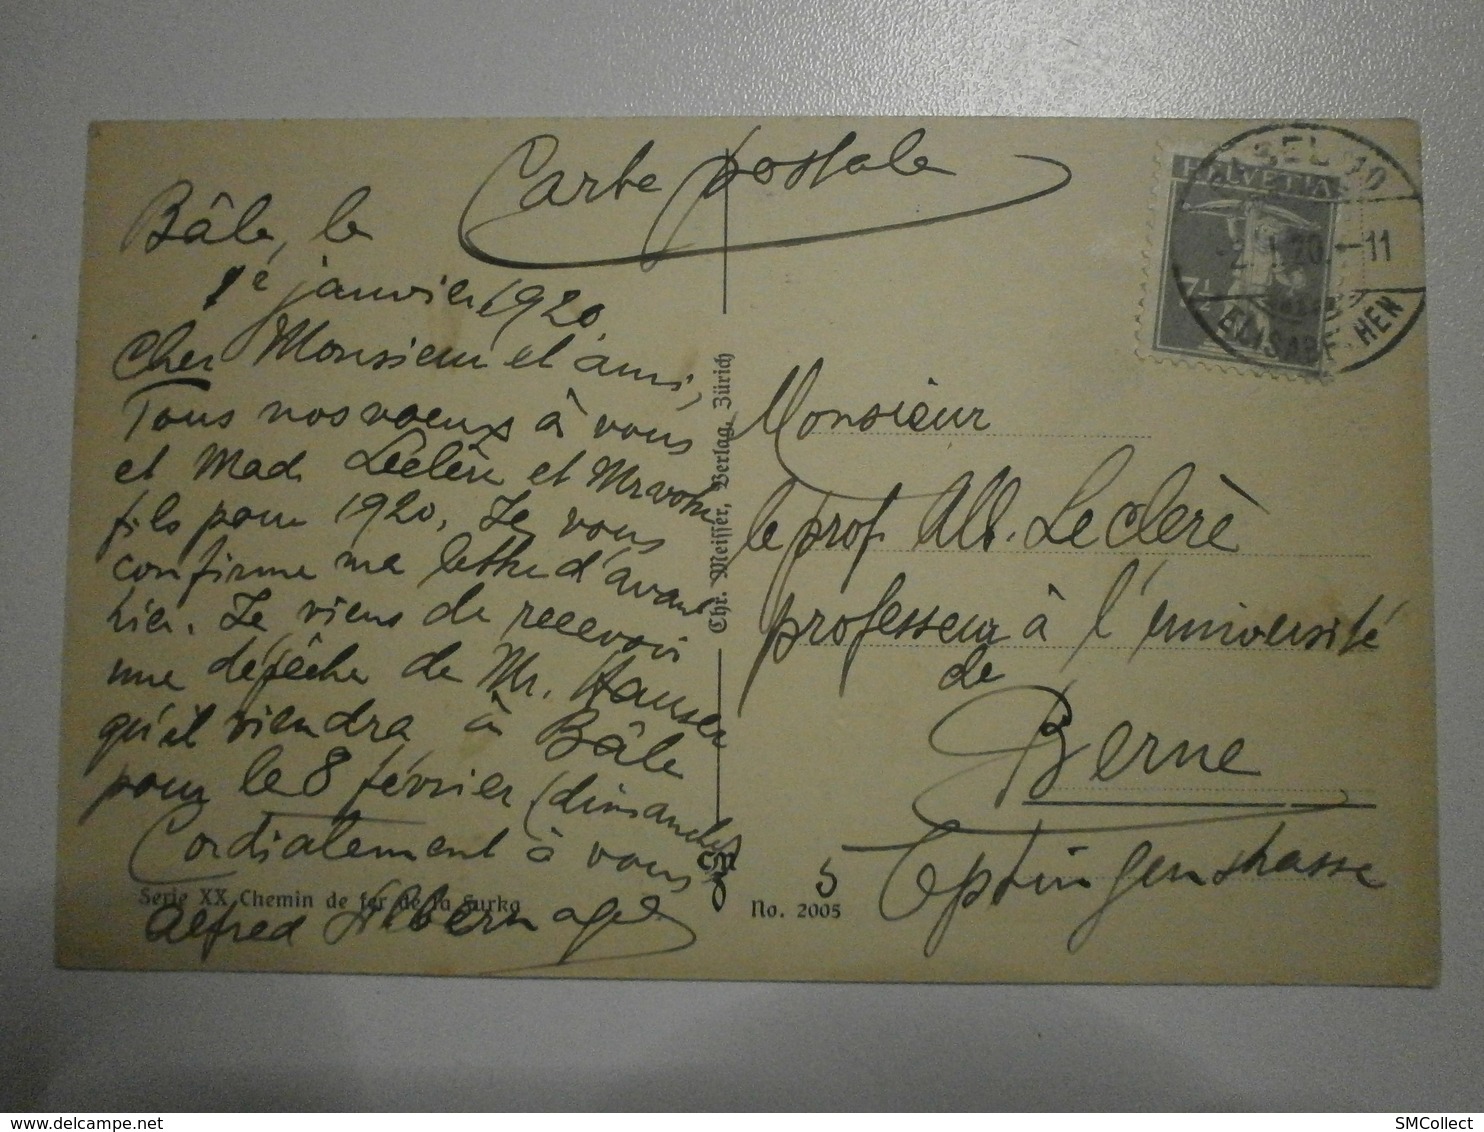 Carte postale
Bâle, le
1é janvier 1920.
Cher Monsieur et ami,
Tous nos voeux à vous
et Mad. Leclère et Mr votre
fils pour 1920. Je vous
confirme ma lettre d'avant
hier. Je viens de recevoir
une dépêche de Mr. Hauser
qu'il viendra à Bâle
pour le 8 février (dimanche)
Cordialement à vous
Alfred
Serie XX Chemin de fer de la Furka
Chr. Meisser, Verlag, Zürich
CM
No. 2005
HELVETIA
7½
BASEL 10
-2. I. 20.-11
ELISABETHEN
Monsieur
le prof. Alb. Leclerè
professeur à l'université
de
Berne
5 Optingenstrasse
SMCollect